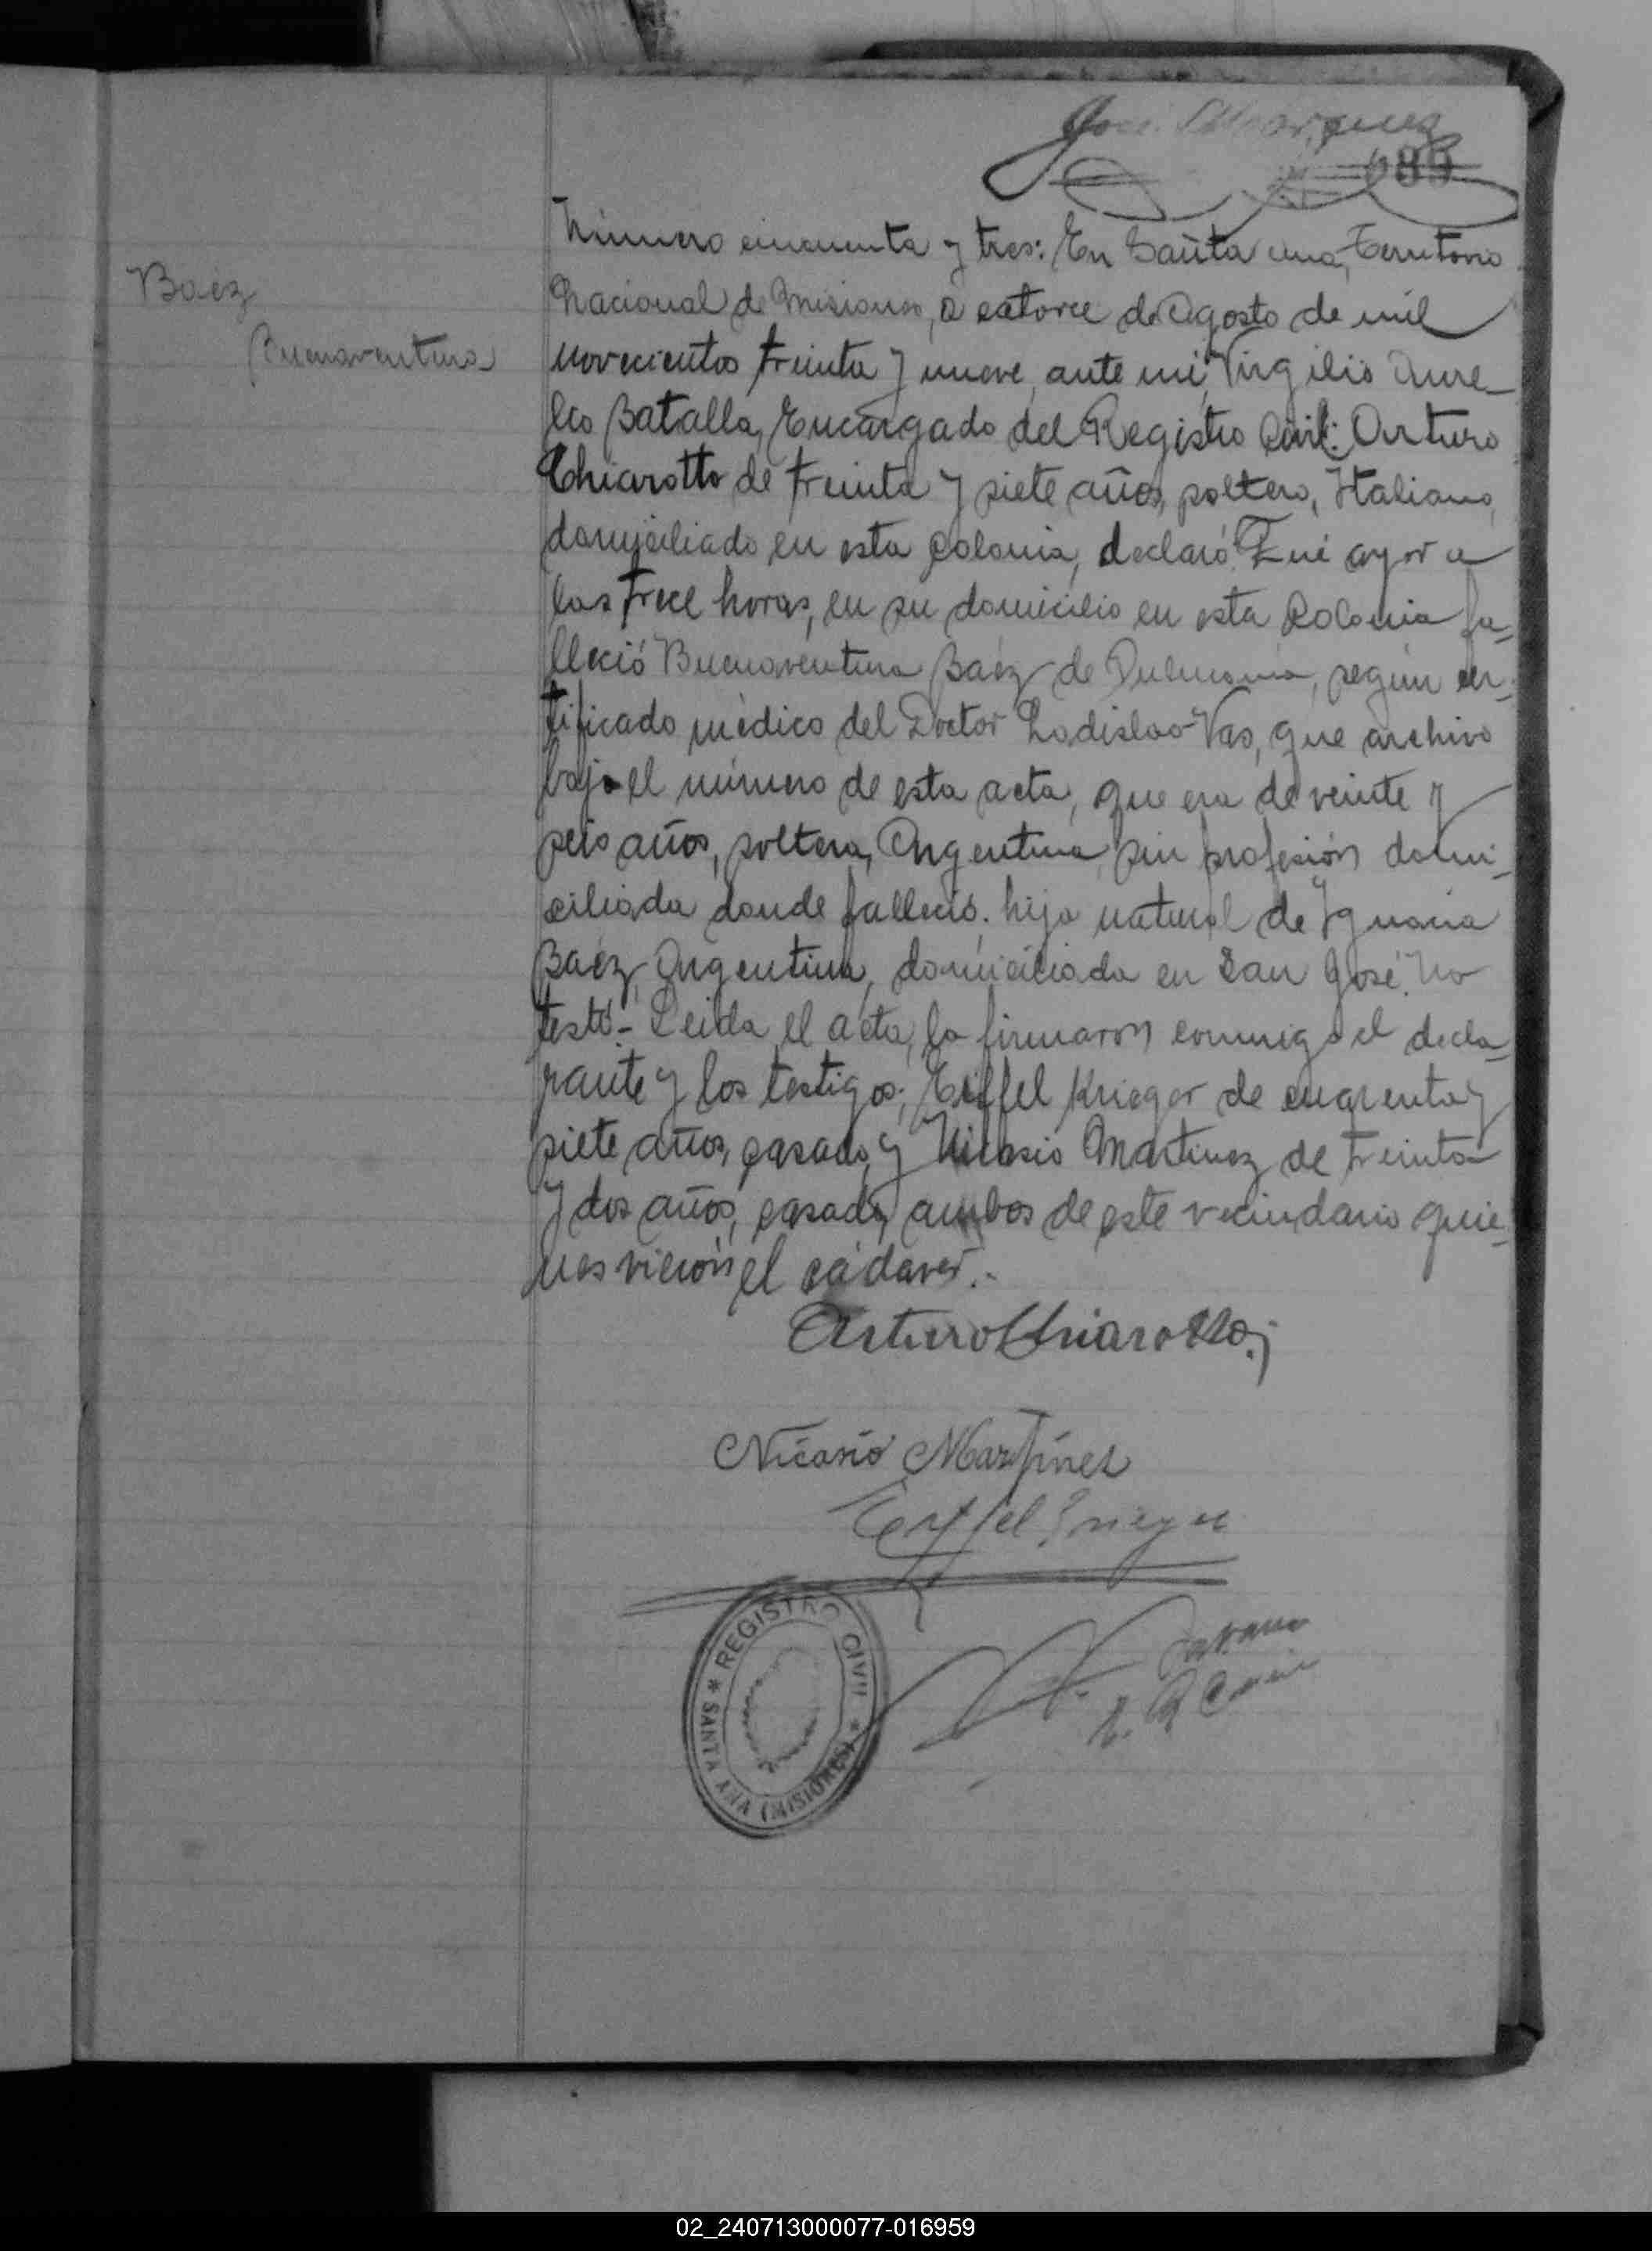 Jose Marquez
089
Baéz
Buenaventura
Número cincuenta y tres: En Santa Ana, Territorio
Nacional de Misiones, a catorce de Agosto de mil
novecientos treinta y nueve, ante mi, Virgilio Aure-
lio Batalla, Encargado del Registro Civil: Arturo
Chiarotto de treinta y siete años, soltero, Italiano,
domiciliado en esta Colonia, declaró: Que ayer a
las trece horas, en su domicilio en esta Colonia fa-
lleció Buenaventura Baéz de Pulmonía, según cer-
tificado médico del Doctor Ladislao Vas, que archivo
bajo el número de esta acta, que era de veinte y
seis años, soltera, Argentina, sin profesión domi-
ciliada donde falleció. hija natural de Ignacia
Baéz, Argentina, domiciliada en San José. No
testó.- Leida el acta, la firmaron conmigo el decla-
rante y los testigos; Eiffel Krieger de cuarenta y
siete años, casado, y Nicasio Martinez de treinta
y dos años, casado, ambos de este vecindario quie-
nes vieron el cádaver.-
Arturo Chiarotto
Nicasio Martinez
Eyffel Krieger
REGISTRO CIVIL
* SANTA ANA (MISIONES) *
02_240713000077-016959